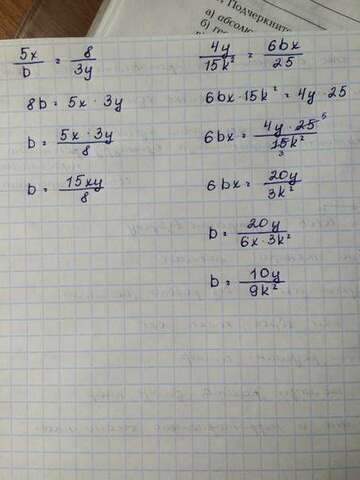 Подчеркните
а) абсолю
б)
5x/b = 8/3y
8b = 5x · 3y
b = 5x · 3y/8
b = 15xy/8
4y/15k² = 6bx/25
6bx · 15k² = 4y · 25
6bx = 4y · 25⁵/15k² 3
6bx = 20y/3k²
b = 20y/6x · 3k²
b = 10y/9k²